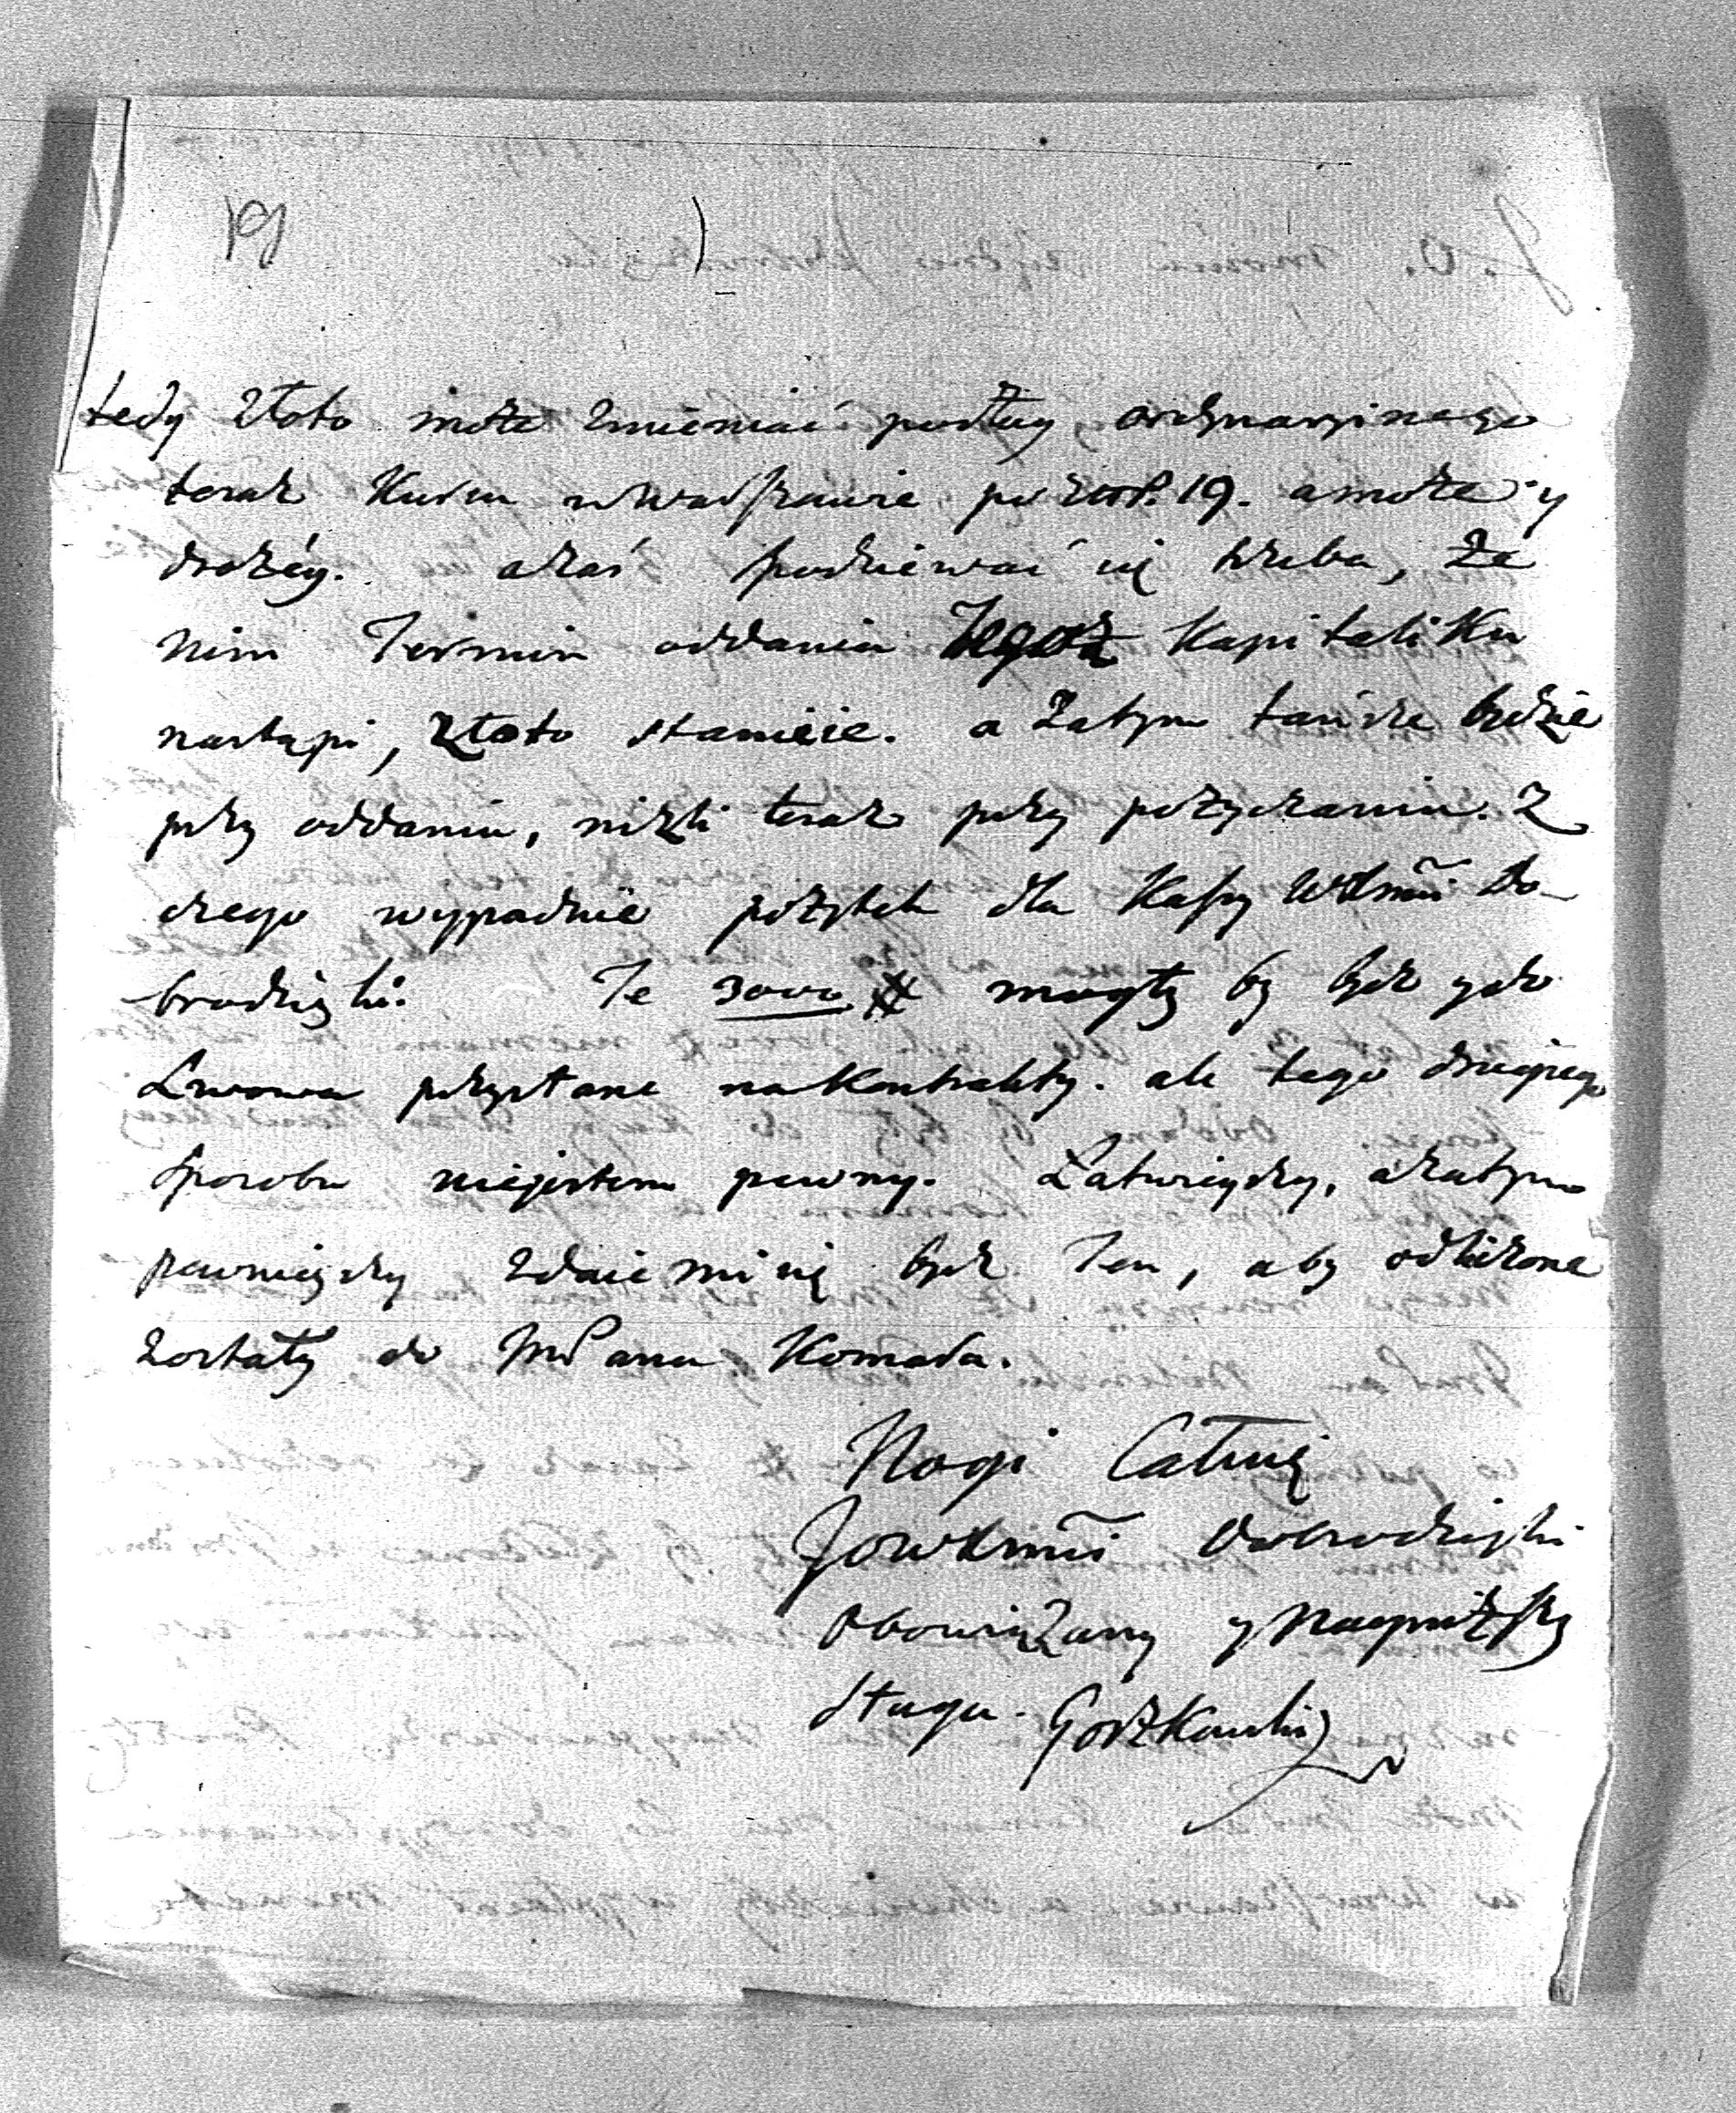 tedy złoto może zmieniać podług ordynaryinego
teraz Kursu w Warszawie po złot. 19. a może y
drożéy. ażaś spodziewać się trzeba, że
nim Termin oddania Tegoż Kapitaliku
nastąpi, złoto stanieie. a Zatym tańsze będzie
przy oddaniu, niżli teraz przy pożyczaniu. Z
czego wypadnie pożytek dla Kassy WXMci Do-
brodziyki. Te 3000 # mogły by bydź y do
Lwowa przysłane na Kontrakty. ale tego drugiego
sposobu niejestem pewny. Łatwieyszy, a zatym
pewnieyszy zdaie mi się bydź Ten, aby odliczone
zostały do JmPana Komara.
Nogi Całuię
JOWXMci Dobrodziyki
obowiązany y Nayniższy
sługa. Gorzkowski